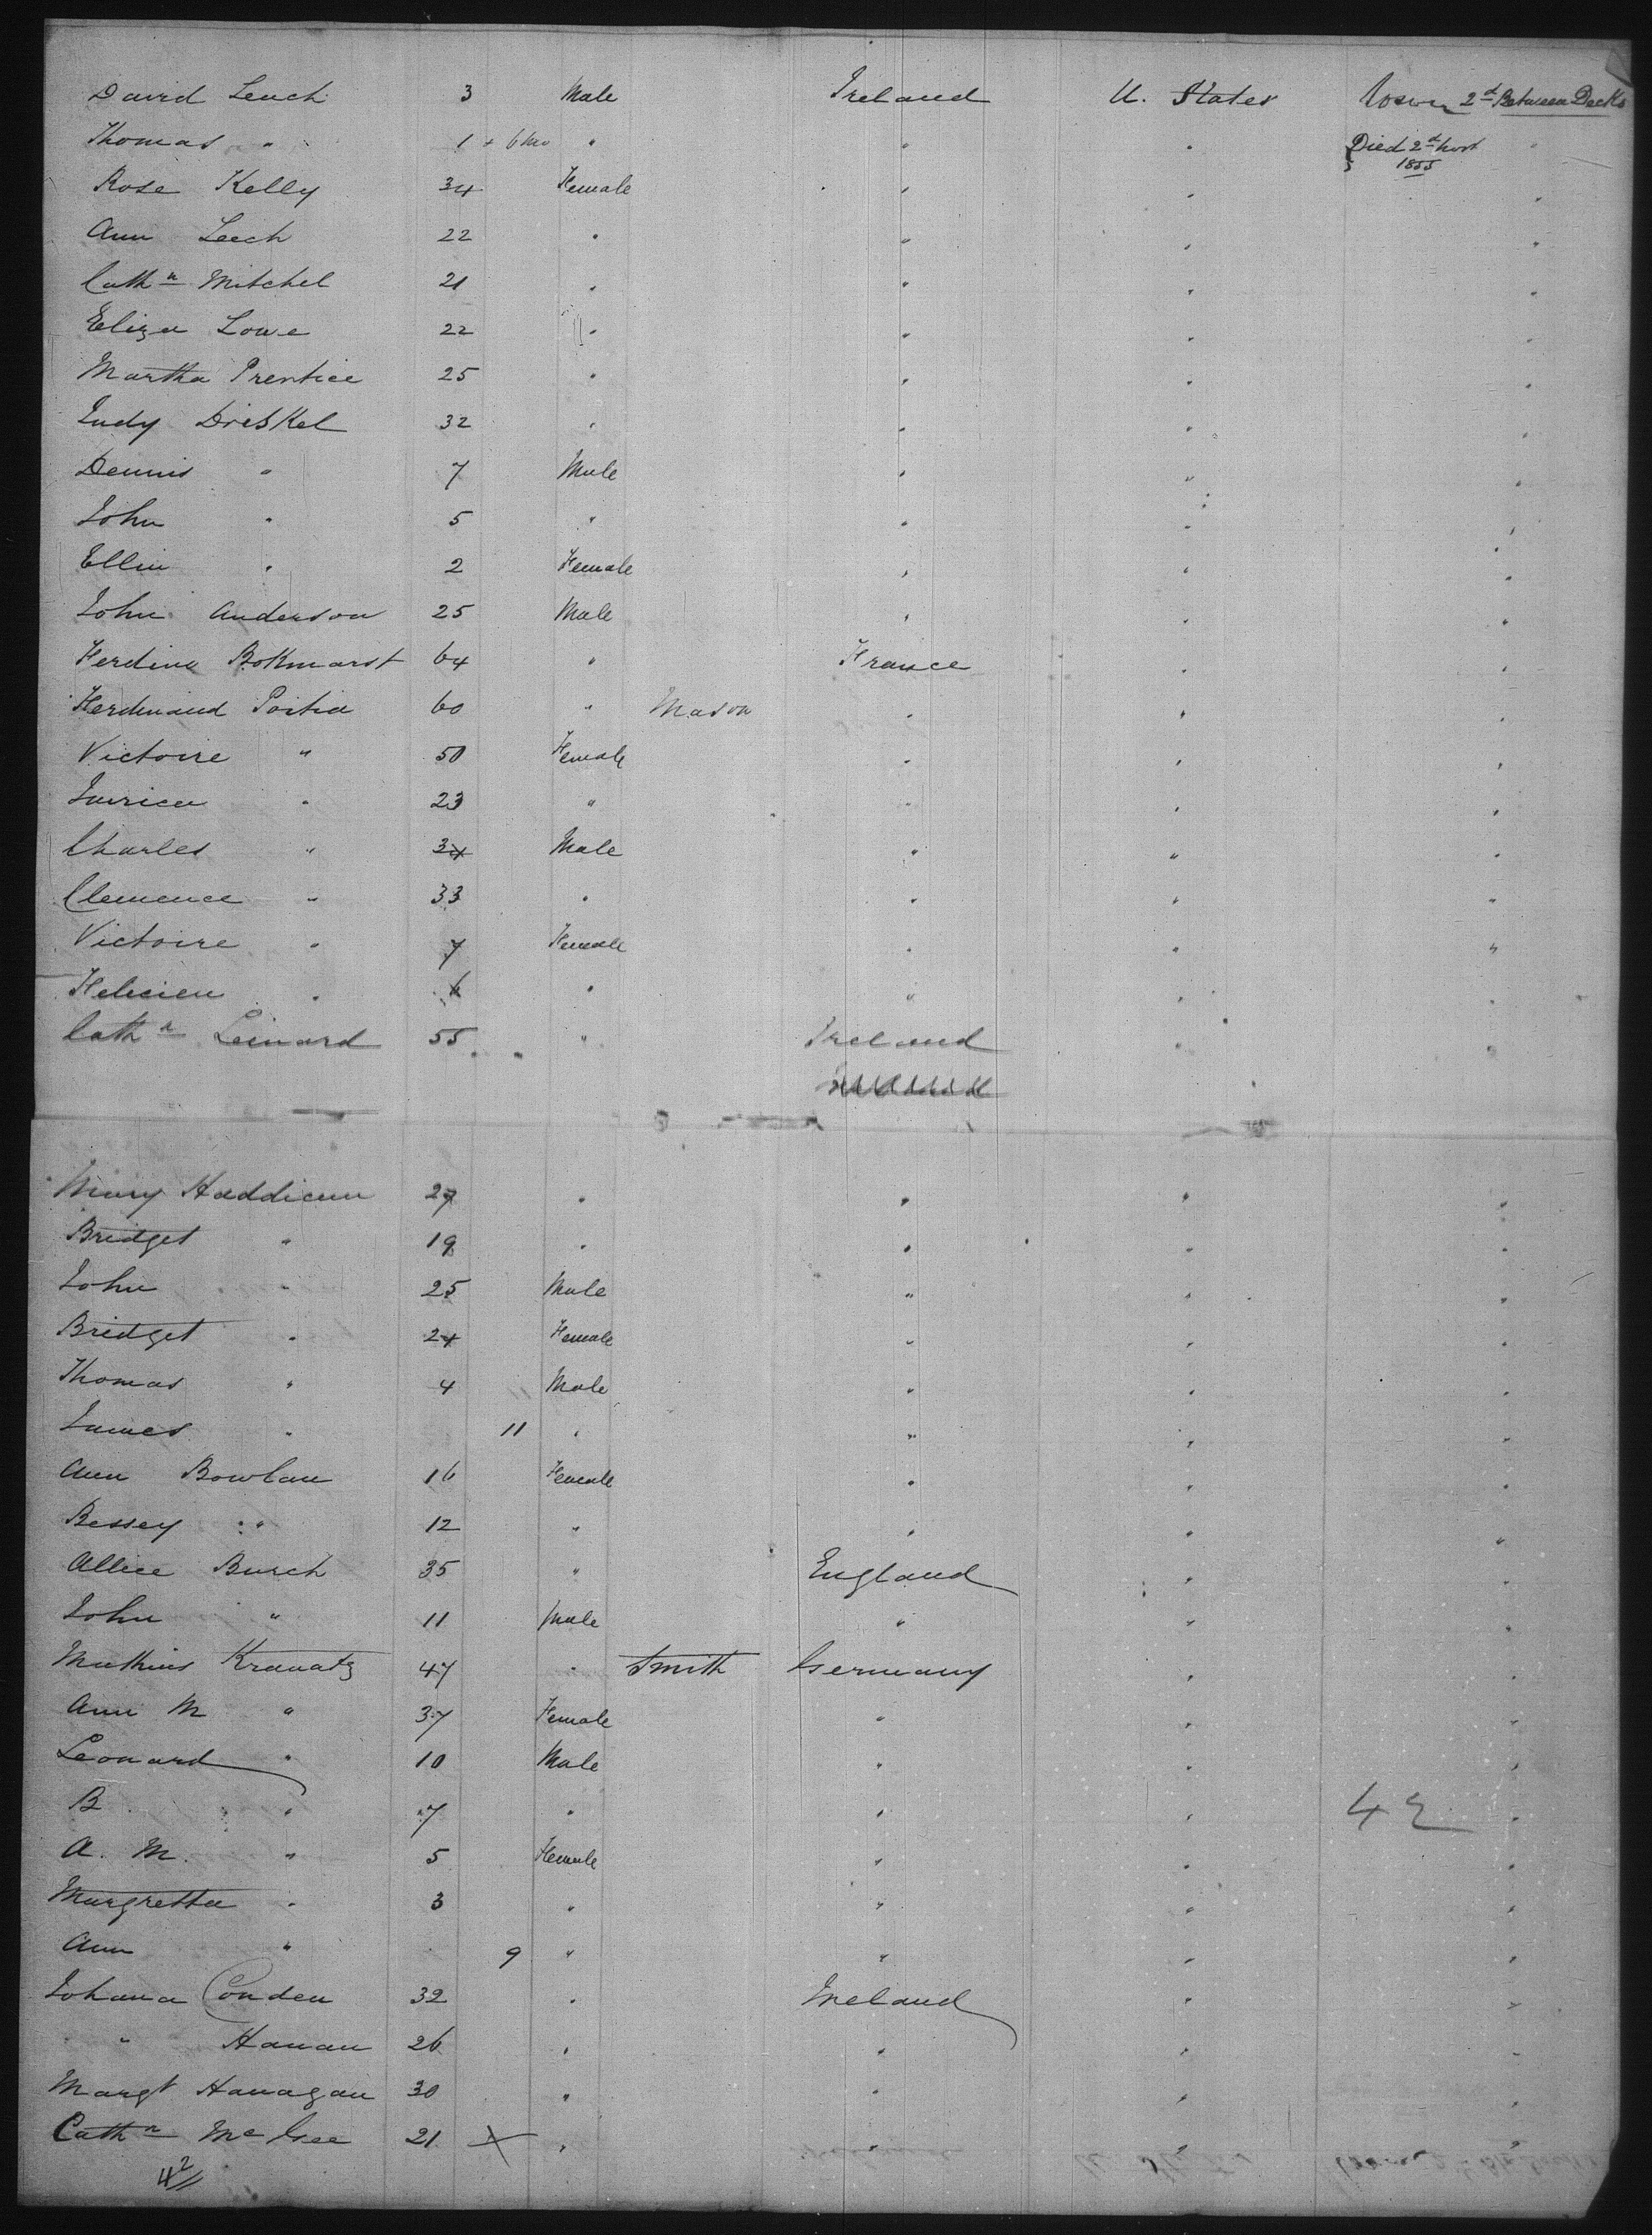 David Leech 3 Male Ireland U. States Lower 2d Between Decks
Thomas " 1 + 6 mo " " " Died 2d Novr 1855 "
Rose Kelly 34 Female " " "
Ann Leech 22 " " " "
Cathn Mitchel 21 " " " "
Eliza Lowe 22 " " " "
Martha Prentice 25 " " " "
Judy Driskel 32 " " " "
Dennis " 7 Male " " "
John " 5 " " " "
Ellin " 2 Female " " "
John Anderson 25 Male " " "
Ferdina Bokmarst 64 " France " "
Ferdinand Poitia 60 " Mason " " "
Victoire " 50 Female " " "
" 23 " " " "
Charles " 34 Male " " "
Clemence " 33 " " " "
Victoire " 7 Female " " "
Felicien " 6 " " " "
Cathn Leinard 55 " Ireland " "
Mary Haddican 27 " " " "
Bridget " 19 " " " "
John " 25 Male " " "
Bridget " 24 Female " " "
Thomas " 4 Male " " "
James " 11 " " " "
Ann Bowlan 16 Female " " "
Bessey " 12 " " " "
Allice Burch 35 " England " "
John " 11 Male " " "
Mathias Kranatz 47 " Smith Germany " "
Ann M " 37 Female " " "
Leonard " 10 Male " " "
B " 7 " " " 42 "
A. M. " 5 Female " " "
Margretta " 3 " " " "
Ann " 9 " " " "
Johana Conden 32 " Ireland " "
" Hanan 26 " " " "
Margt Hanagan 30 " " " "
Cathn McGee 21 X " " " "
42